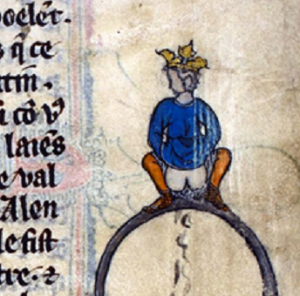 poelet.
s q̄ ce
ttm̄.
i cō v⁹
laiens
e val
Alen
le fist
tre. ⁊